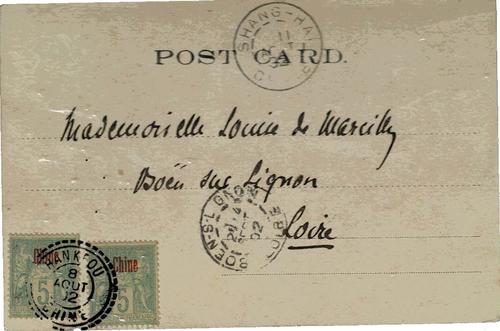 SHANG-HAI
11
AOUT
02
CHINE
POST CARD.
Mademoiselle Louise de Marcilly
Boën sur Lignon
Loire
BOEN-S-LIGNON
SEPT
02
LOIRE
Chine
Chine
5
5
HANKEOU
8
AOUT
02
CHINE